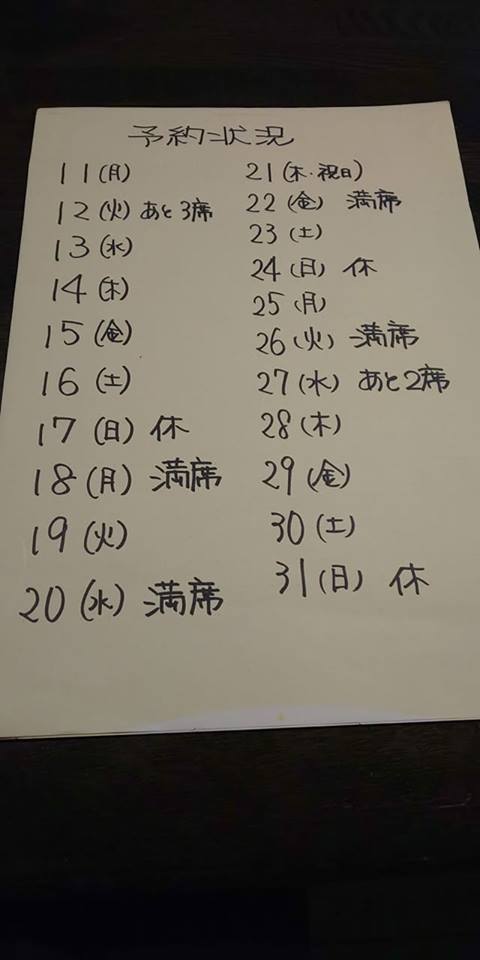 予約状況
11(月)
12(火) あと3席
13(水)
14(木)
15(金)
16(土)
17(日) 休
18(月) 満席
19(火)
20(水) 満席
21(木・祝日)
22(金) 満席
23(土)
24(日) 休
25(月)
26(火) 満席
27(水) あと2席
28(木)
29(金)
30(土)
31(日) 休